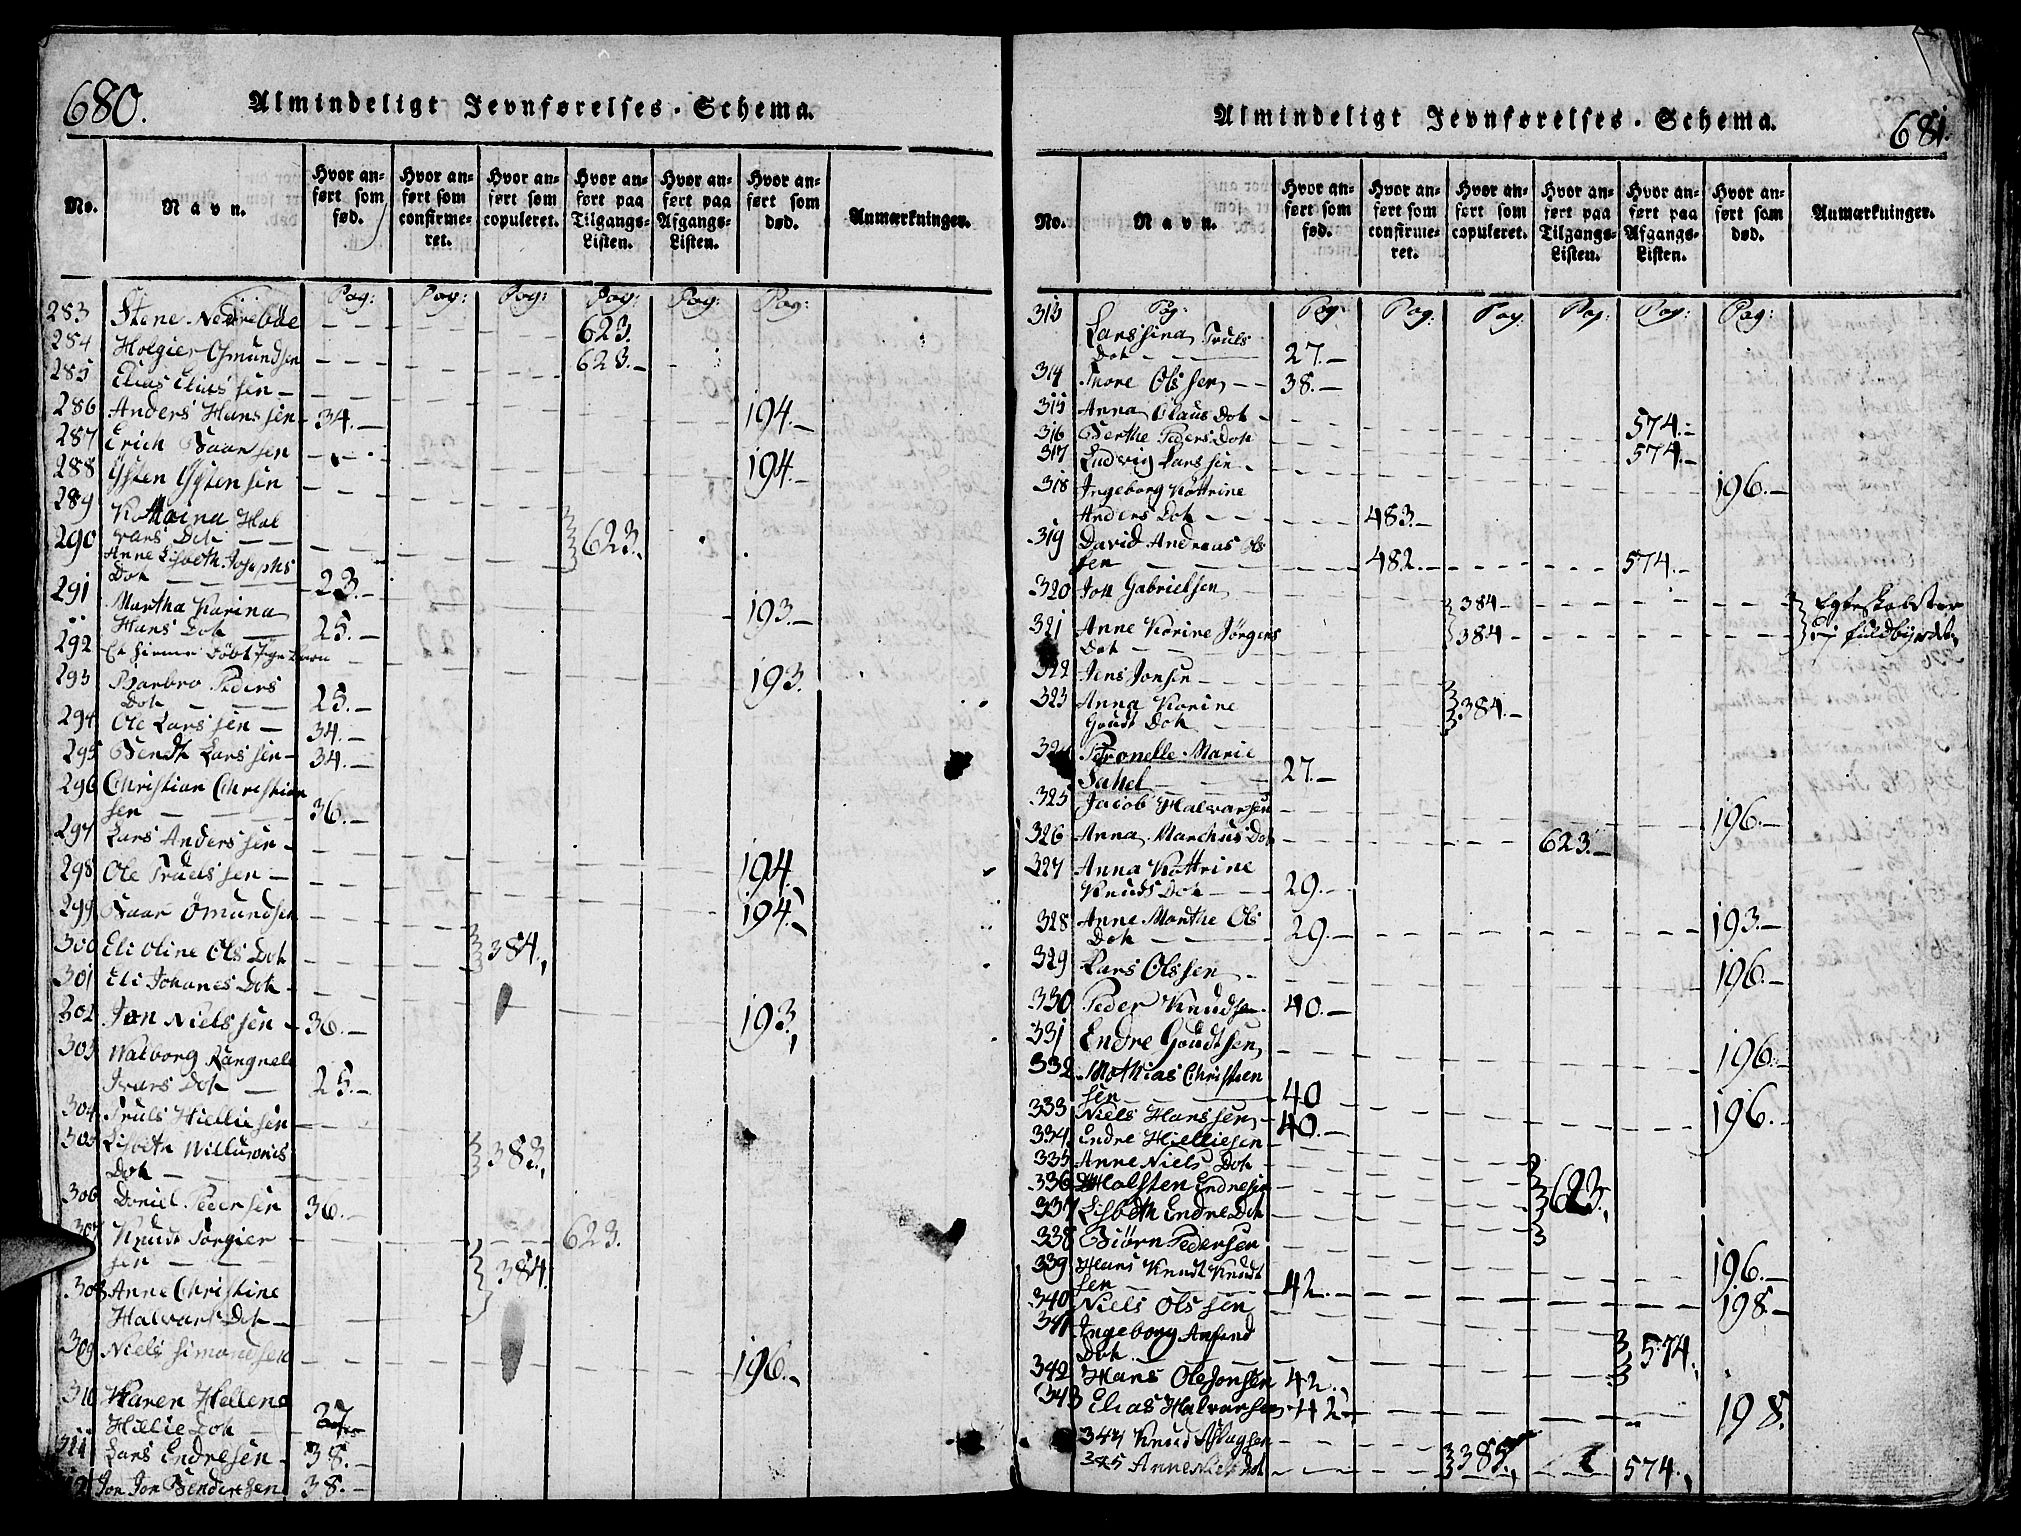 680.
Almindeligt Jevnførelses-Schema.
No.
Navn.
Hvor anført som fød.
Hvor anført som confirmeret.
Hvor anført som copuleret.
Hvor anført paa Tilgangs-Listen.
Hvor anført paa Afgangs-Listen.
Hvor anført som død.
Anmærkninger.
Pag: Pag: Pag: Pag: Pag: Pag:
283 Stene Nedrebøe 623.
284 Holgier Gmundsen 623.
285 Elias Eliassen
286 Anders Hanssen 34. 194.
287 Erich Baarsen
288 Østen Østensen 194.
289 Kattrina Halvars Dot
290 Anne Lisbeth Josephs Dot 23. 623.
291 Martha Karina Hans Dot 25. 193.
292 Et hieme døbt Pige Barn
293 Barbro Peders Dot 25. 193.
294 Ole Larssen 34.
295 Bendt Larssen 34.
296 Christian Christiansen 36.
297 Lars Anderssen
298 Ole Trulssen 194.
299 Baar Ømundsen 194.
300 Eli Oline Ols Dot 384,
301 Eli Johanes Dot
302 Jan Nielssen 36. 193,
303 Walborg Rangnele Ivars Dot 25.
304 Truls Hielliesen
305 Lisbeth Willums Dot 383,
306 Doniel Pedersen 36.
307 Knudt Torgiersen 623. 384.
308 Anne Christine Halvars Dot
309 Niels Simonsen 196.
310 Karen Hellene Hælie Dot 37
311 Lars Endresen 38.
312 Jon Jon Bendixsen 38.
681.
Almindeligt Jevnførelses-Schema.
No.
Navn.
Hvor anført som fød.
Hvor anført som confirmeret.
Hvor anført som copuleret.
Hvor anført paa Tilgangs-Listen.
Hvor anført paa Afgangs-Listen.
Hvor anført som død.
Anmærkninger.
Pag: Pag: Pag: Pag: Pag: Pag: Pag:
313 Larssina Truls Dot 27.
314 Thore Olssen 38.
315 Anna Claus Dot 574.
316 Berthe Peders Dot 574.
317 Ludvig Larssen 196.
318 Ingeborg Kattrine Anders Dot 483.
319 David Andreas Olssen 482. 574.
320 Jon Gabrielsen 384 Egteskabet er
321 Anne Korine Jørgens Dot 384 ej fuldbyrdet
322 Jens Jonsen
323 Anna Karine Goudt Dot 384.
324 Petronelle Marie Sahel 27.
325 Jacob Halvarsen 196.
326 Anna Marchus Dot 623.
327 Anna Kattrine Knuds Dot 29.
328 Anne Marthe Ols Dot 29. 193.
329 Lars Olssen 196.
330 Peder Knudsen 40.
331 Endre Goudtsen 196.
332 Mathias Christensen 40
333 Niels Hanssen 40. 196.
334 Endre Hielliesen
335 Anne Niels Dot
336 Halsten Endresen 623.
337 Lisbeth Endre Dot
338 Biørn Pedersen 196.
339 Hans Knudt Knudtsen 42.
340 Niels Olssen 198.
341 Ingeborg Anfind Dot 574.
342 Hans Ole Jonsen 42.
343 Elias Halvarsen 42. 198.
344 Knud Aslagsen 385,
345 Anne Niels Dot 574.